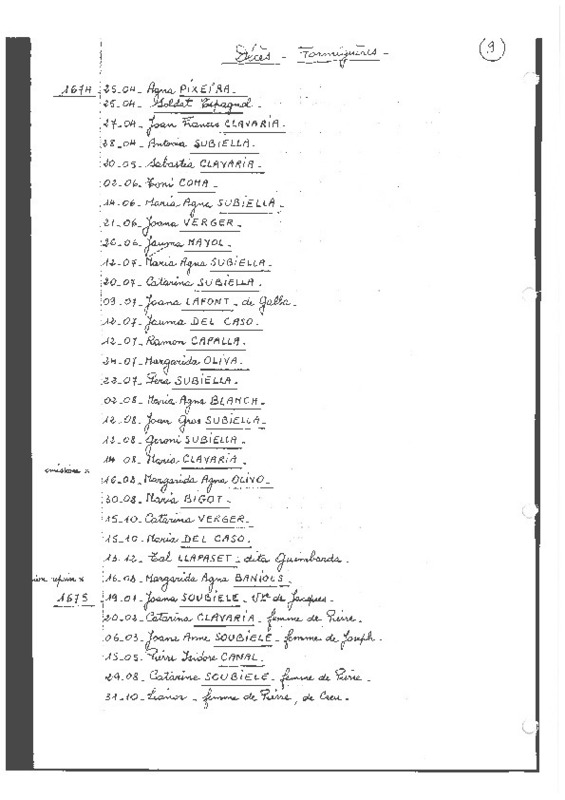 Décès - Formiguères -
9
1674 25-04- Agna PIXEIRA-
25-04- Soldat Espagnol-
27-04- Joan Francis CLAVARIA-
28-04- Antonia SUBIELLA-
20-05- Sabastia CLAVARIA-
02-06- Toni COMA-
14-06- Maria Agna SUBIELLA-
21-06- Joana VERGER-
26-06- Jauma MAYOL-
12-07- Maria Agna SUBIELLA-
20-07- Catarina SUBIELLA-
09-07- Joana LAFONT- de Galba-
12-07- Jauma DEL CASO-
12-07- Ramon CAPALLA-
24-07- Margarida OLIVA-
23-07- Pera SUBIELLA-
02-08- Maria Agna BLANCA-
12-08- Joan Gras SUBIELLA-
13-08- Geroni SUBIELLA-
14-08- Maria CLAVARIA-
omission x
16-08- Margarida Agna OLIVO-
30-08- Maria BIGOT-
15-10- Catarina VERGER-
15-10- Maria DEL CASO-
13-12- Tal LLAPASET- dita Guimbarda-
x 16-08- Margarida Agna BANIOLS-
1675 19-01- Joana SOUBIELE- Vve de Jacques-
20-02- Catarina CLAVARIA- femme de Pierre-
06-03- Joane Anne SOUBIELE- femme de Joseph-
15-05- Pierre Isidore CANAL-
29-08- Catarine SOUBIELE- femme de Pierre-
31-10- Lianor- femme de Pierre, de Creu-